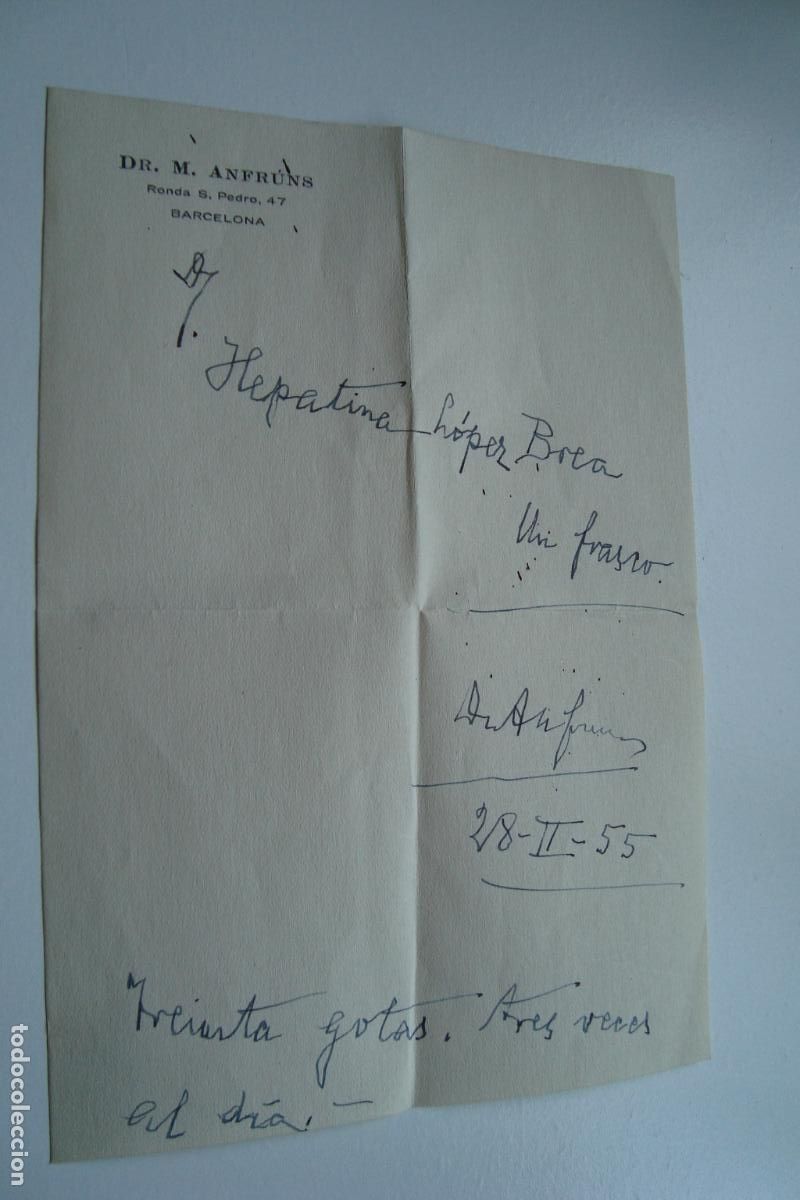 DR. M. ANFRÚNS
Ronda S. Pedro, 47
BARCELONA
D/.
Hepatina López Brea
Un frasco.
Dr Anfruns
28-II-55
Treinta gotas. tres veces
al día. —
todocoleccion